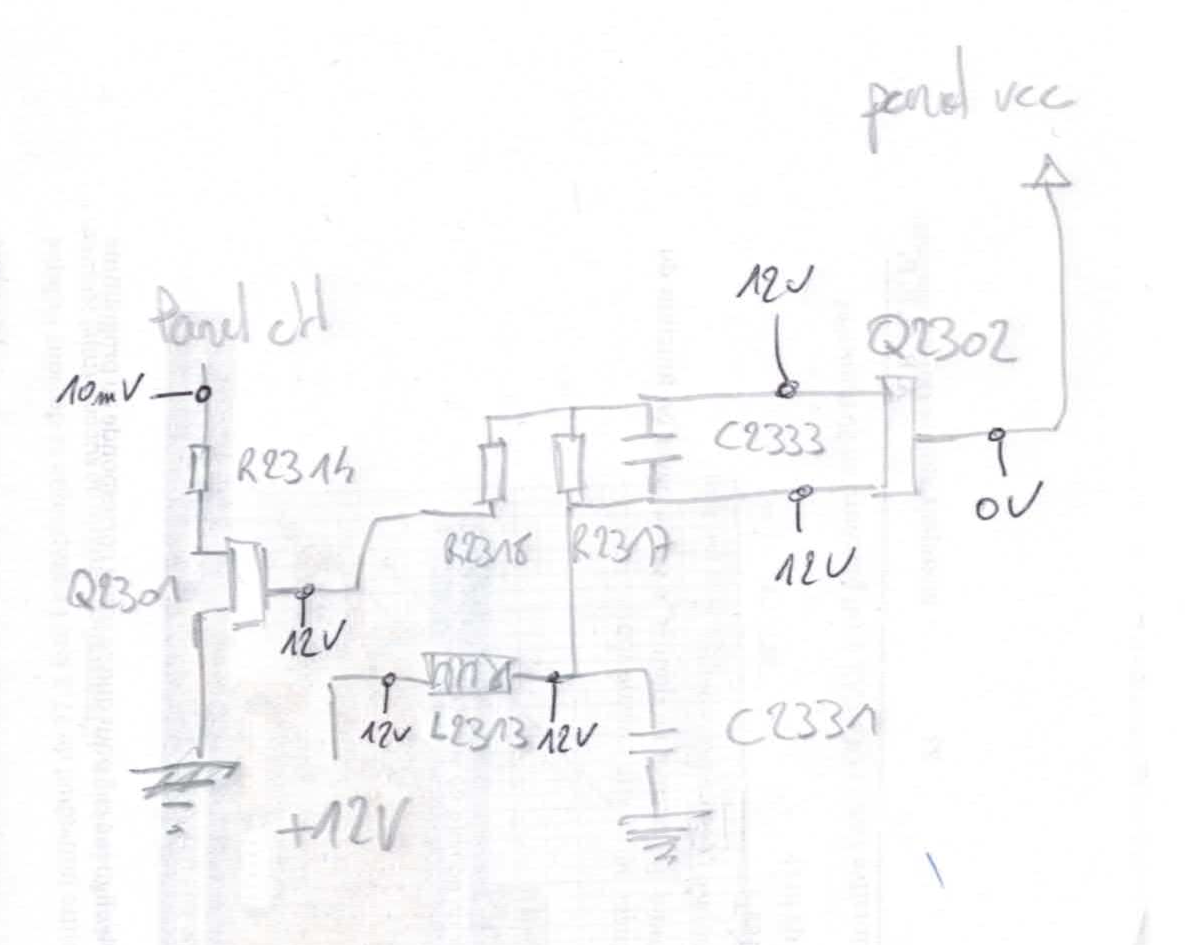 panel vcc
12V
Panel ctl
Q2302
10mV
C2333
R2314
0V
R2316
R2317
12V
Q2301
12V
12V
L2313
12V
C2331
+12V